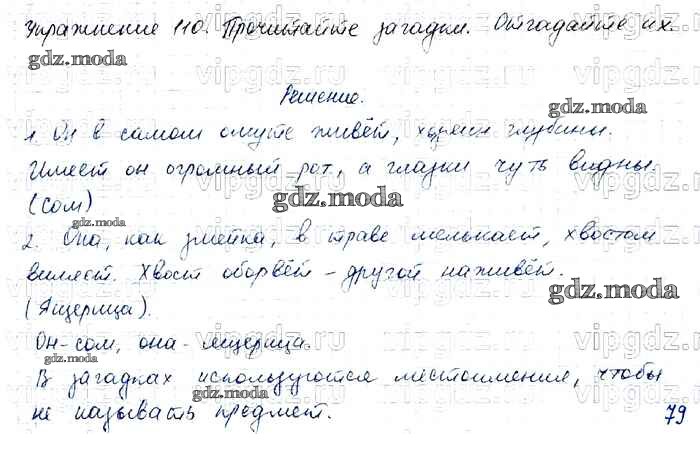 Упражнение 110. Прочитайте загадки. Отгадайте их.
gdz.moda
Решение.
gdz.moda
1. Он в самом омуте живёт, хозяин глубины.
Имеет он огромный рот, а глазки чуть видны.
(Сом)
gdz.moda
gdz.moda
2. Она, как змейка, в траве мелькает, хвостом
виляет. Хвост оборвёт - другой наживёт.
gdz.moda
(Ящерица).
Он-сом, она-ящерица.
gdz.moda
В загадках используются местоимения, чтобы
gdz.moda
не называть предмет.
79
vipgdz.ru